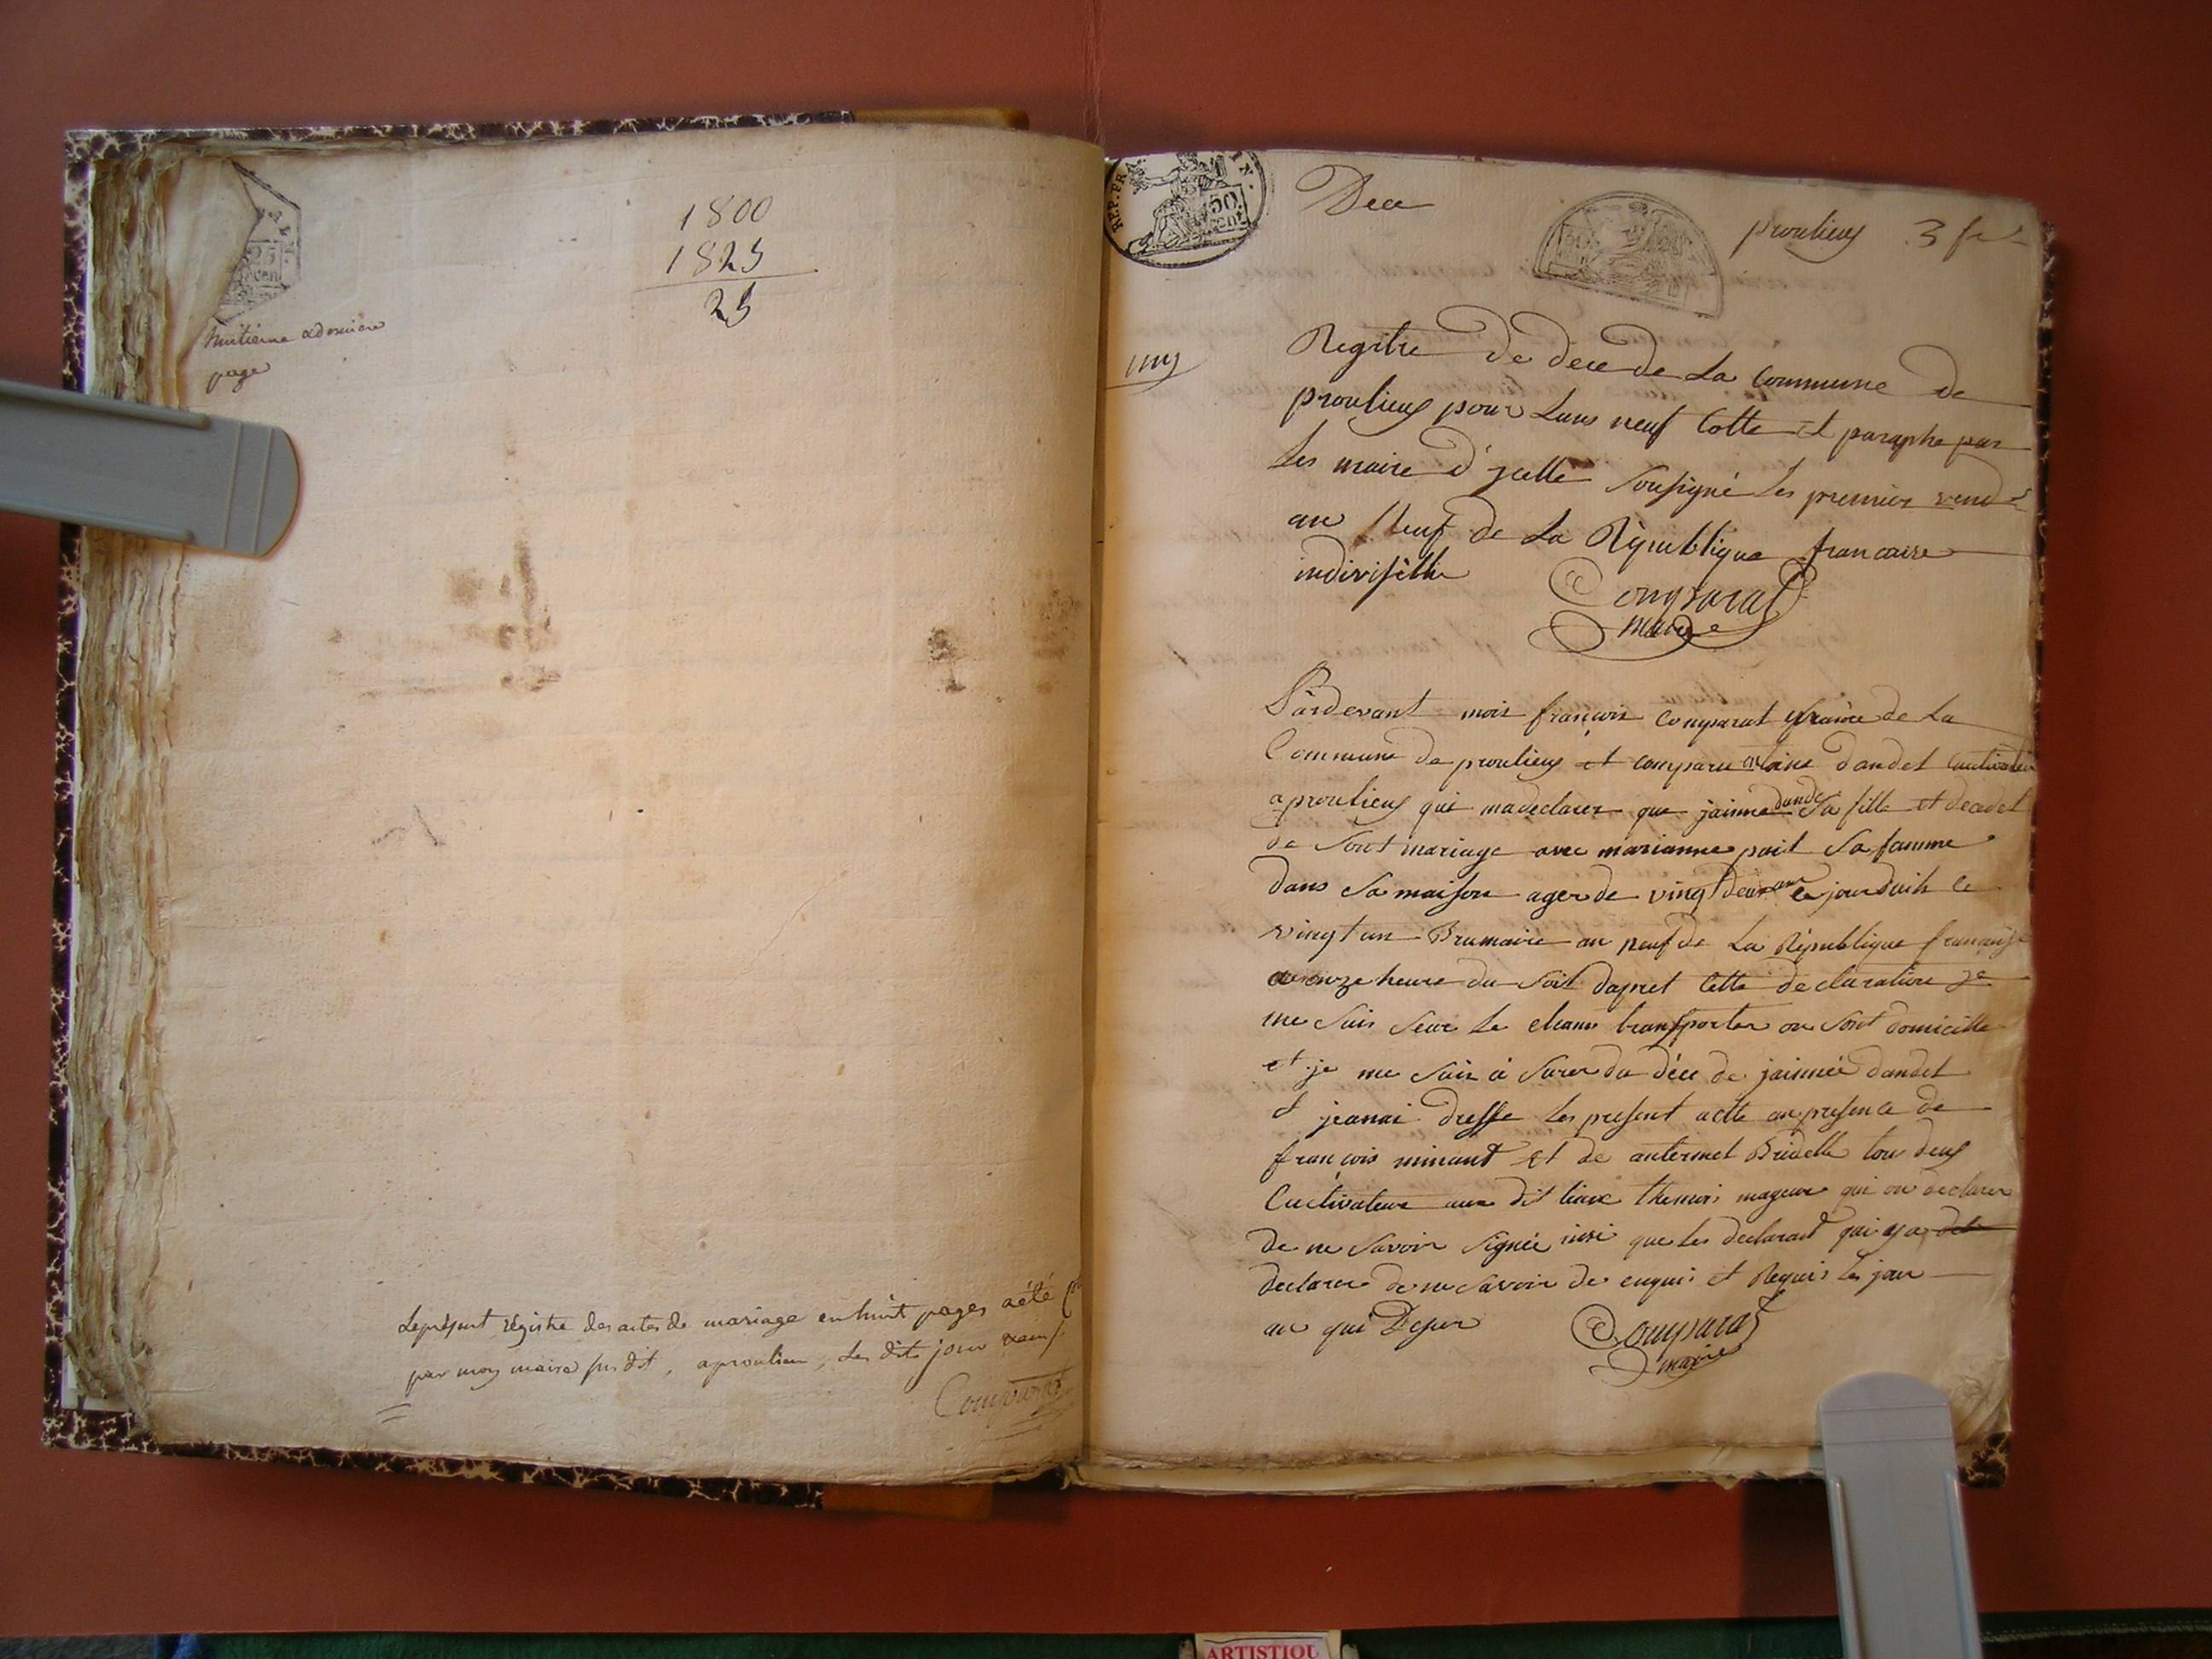 25
cen.
huitieme & derniere
page
1800
1825
25
Le présent régistre des actes de mariage en huit pages a été
par moy maire sus dit, a proulieu, les dit jour &
Comparat
REP. FRA.
50
cent
Dece
proulieux 3 fr
Regitre de dece de La Commune de
proulieux pour Lans neuf Cotte et paraphe par
Les maire d'jcelle Sousigné Les premier vend
an Neuf de La République francaise
indivisible
Comparat
maire
Pardevant mois françois Comparat maire de La
Commune de proulieux et comparu antoine dandet Cultivateur
a proulieux qui ma declarer que jaimee dandet Sa fille et decedet
de Sont mariage avec marianne pait Sa famme
dans Sa maison ager de vingt deux ans ce jourduih le
vingt un Brumaire an neuf de La République française
a onze heure du Soit dapret Cette declaration je
me Suis Seur Le cham transporter au Sont domicille
et je me Suis a Surer du déce de jaimée dandet
et jeanai dresse Les present acte an presence de
françois minant et de antermet Bridelle tou deux
Cultivateur aux dit lieux themois mageur qui on declarer
de ne Savoir Signée insi que Les declarant qui a
declarer de ne Savoir de enquis et Requis Les jour
an qui Desur
Comparat
maire
ARTISTIQU